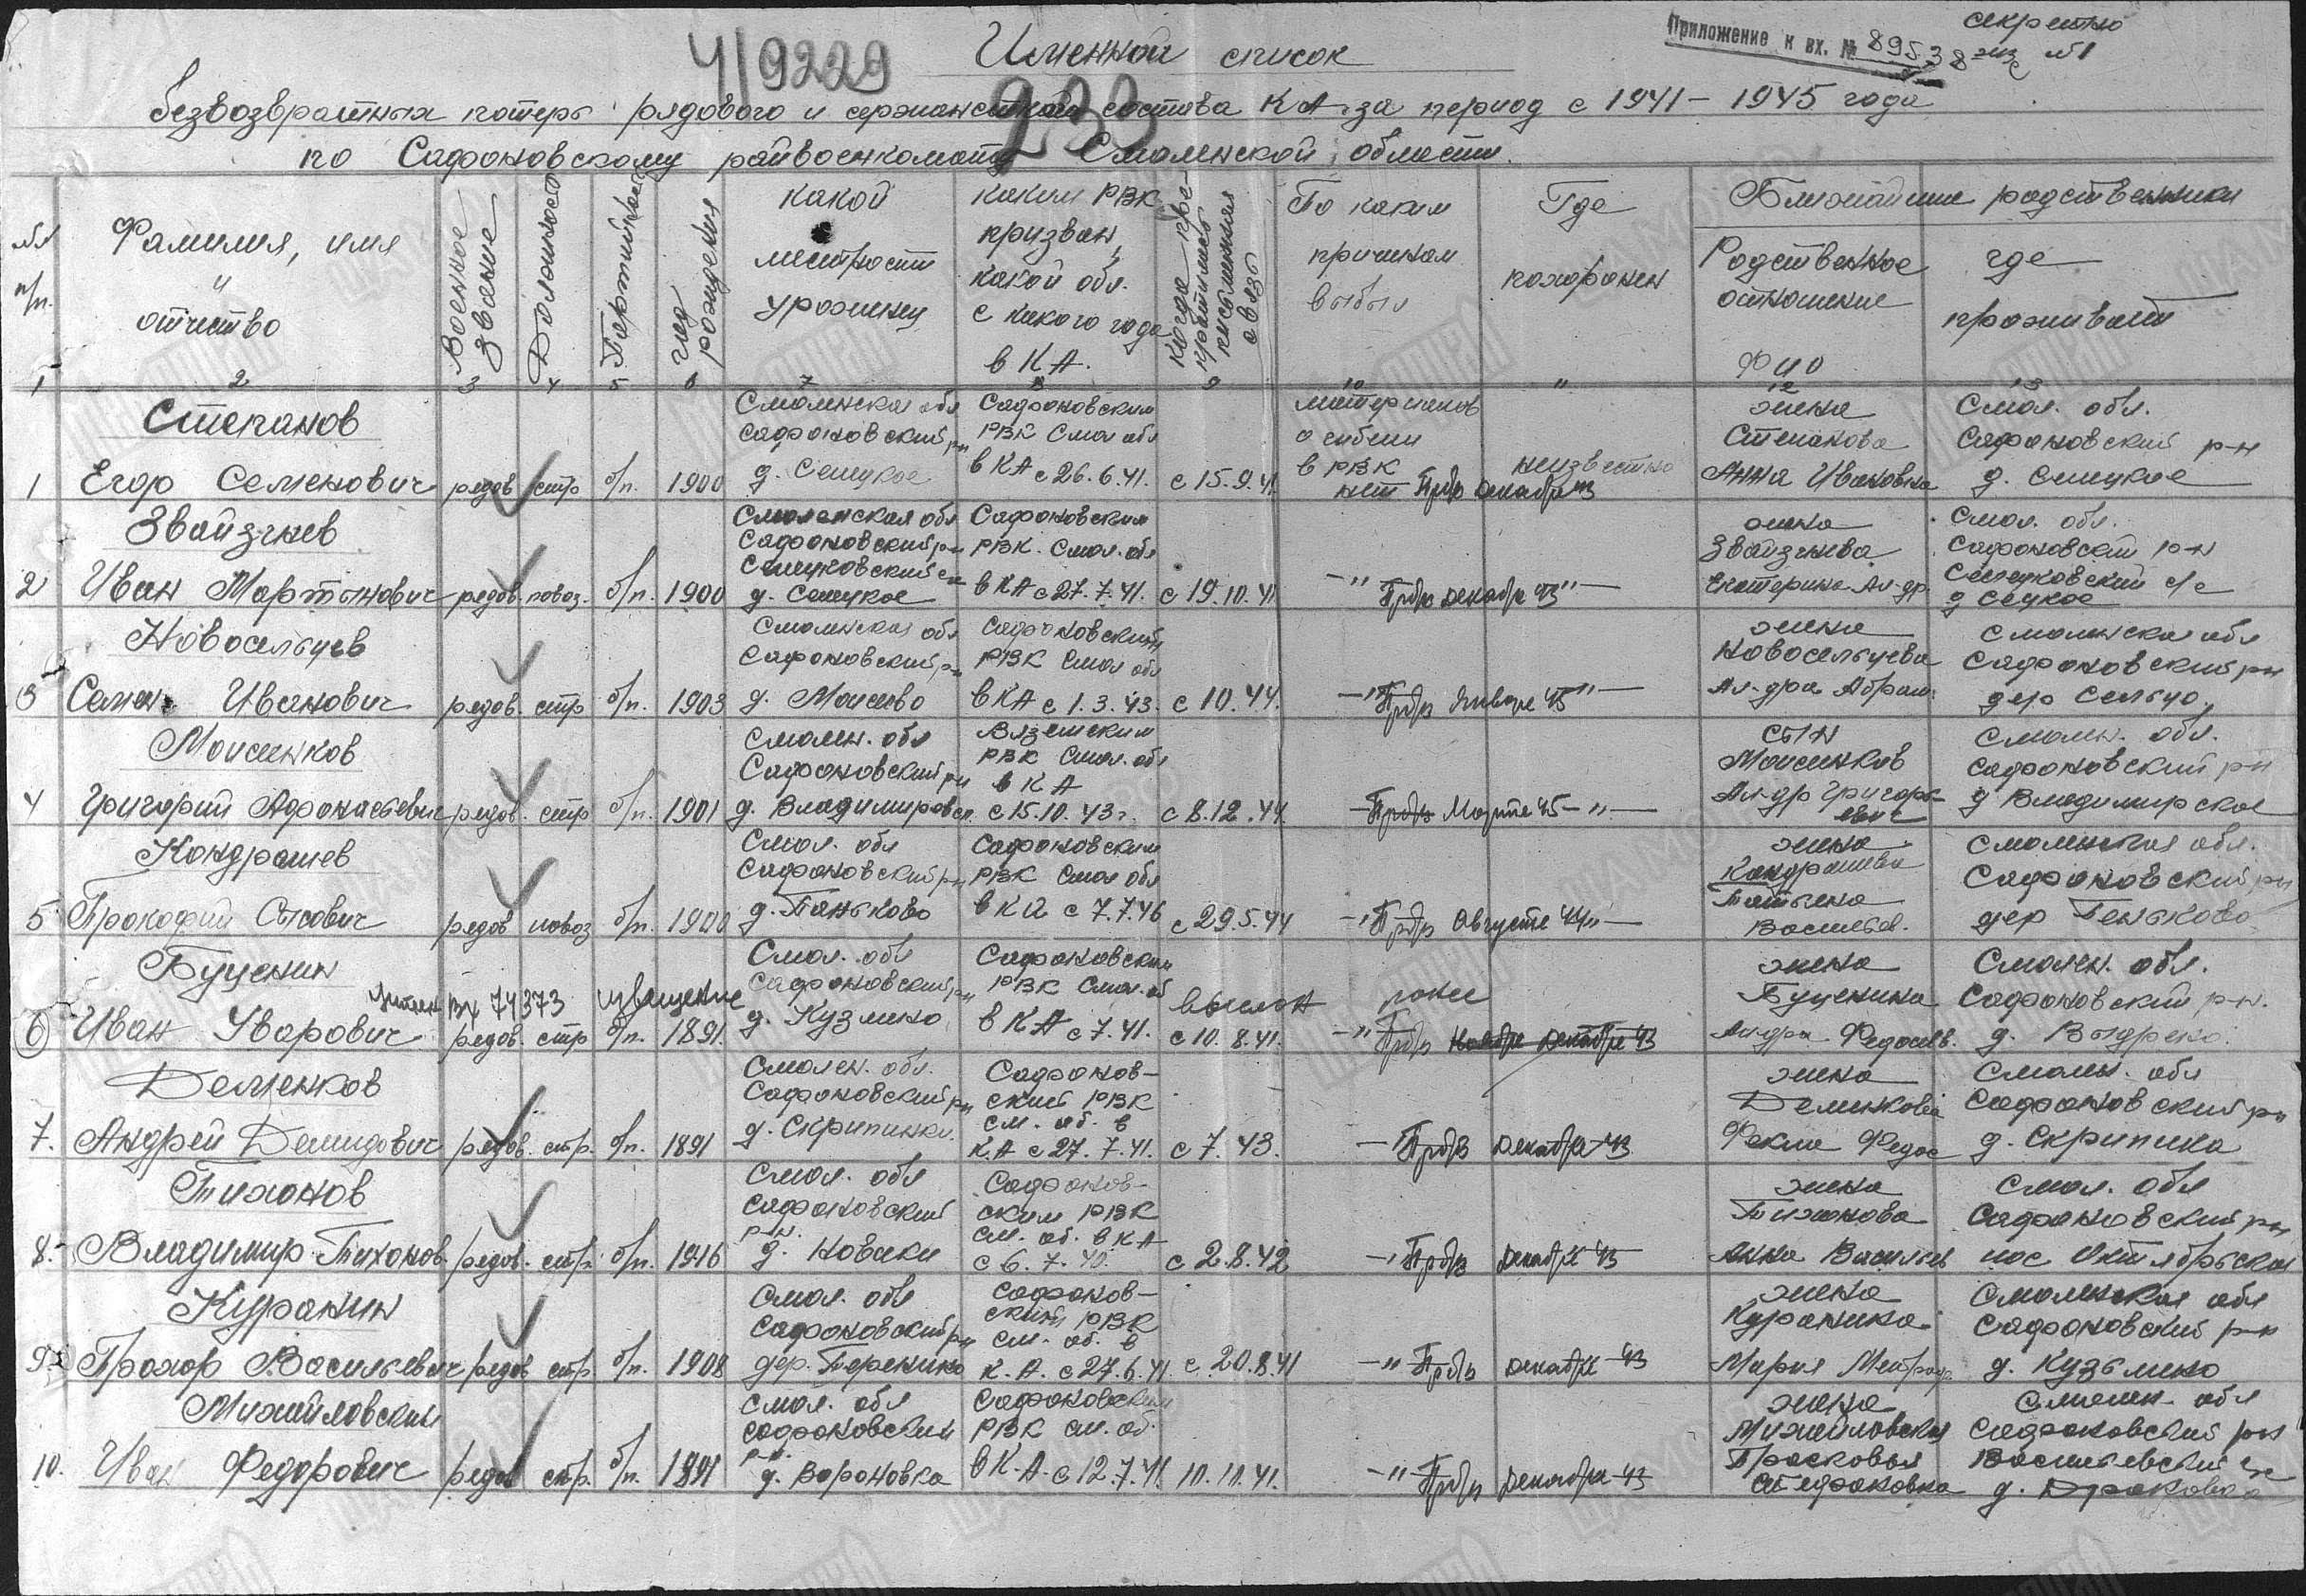 секретно
Приложение к вх. № 8953 8
экз №1
4/9229
Именной список
233
безвозвратных потерь рядового и сержантского состава КА за период с 1941 – 1945 года
по Сафоновскому райвоенкомату Смоленской области.
№№ п/п.
Фамилия, имя и отчество
Военное звание
Должность
Партийность
год рождения
какой местности уроженец
каким РВК призван, какой обл. с какого года в КА.
когда прекратилась письменная связь
По каким причинам выбыл
Где похоронен
Ближайшие родственники
Родственное отношение ФИО
где проживает
1 2 3 4 5 6 7 8 9 10 11 12 13
Степанов
1 Егор Семенович рядов стр б/п. 1900
Смоленская обл
Сафоновский рн
д. Сецкое
Сафоновским
РВК Смол обл
в КА с 26.6.41.
с 15.9.41.
материалов
о гибели
в РВК
нет Прбп декабре 43
неизвестно
жена
Степанова
Анна Ивановна
Смол. обл.
Сафоновский р-н
д. Сецкое
Звайзгнев
2 Иван Мартынович рядов. повоз. б/п. 1900
Смоленская обл
Сафоновский рн
д. Сецкое
Сафоновским
РВК. Смол. обл
в КА с 27.7.41.
с 19.10.41
–"– Прбп декабре 43 –"–
жена
Звайзгнева
Екатерина Ал-др.
Смол. обл.
Сафоновский р-н
с/с
Новосельцев
3 Семен Иванович рядов. стр б/п. 1903
Смоленская обл
Сафоновский рн
д. Моисеево
Сафоновский
РВК Смол обл
в КА с 1.3.43.
с 10.44.
–"– Прбп Январе 45 –"–
жена
Новосельцева
Ал-дра Абрам.
Смоленская обл
Сафоновский рн
дер Сельцо
Моисеенков
4 Григорий Афонасьевич рядов. стр б/п. 1901
Смолен. обл
Сафоновский рн
д. Владимировск.
Вяземским
РВК Смол. обл
в КА
с 15.10.43г.
с 8.12.44.
– Прбп Марте 45 –"–
сын
Моисеенков
Ал-др Григорьевич
Смолен. обл.
Сафоновский рн
д Владимирское
Кондрашев
5 Прокофий Сысович рядов повоз б/п. 1900
Смол. обл
Сафоновский рн
д. Паньково
Сафоновским
РВК Смол обл
в КА с 7.7.
с 29.5.44
–"– Прбп Августе 44 –"–
жена
Кондрашева
Татьяна
Васильев.
Смоленская обл.
Сафоновский рн
дер Пеньково
Буценин
вх 74373 извещение выслан ранее
6 Иван Уварович рядов. стр б/п. 1891.
Смол. обл
Сафоновский рн
д. Кузмино
Сафоновским
РВК Смол. об
в КА с 7.41.
с 10.8.41.
–"– Прбп Ноябре Декабре 43
жена
Буценина
Ал-дра Федосеев.
Смолен. обл.
Сафоновский р-н.
Деменков
7. Андрей Демидович рядов. стр. б/п. 1891
Смолен. обл.
Сафоновский рн
д. Скрипинки.
Сафонов-
ский РВК
см. об. в
КА с 27.7.41.
с 7.43.
–"– Прбп декабре 43
жена
Деменкова
Фекла Федос
Смолен. обл
Сафоновский рн
д. Скрипика
Тихонов
8. Владимир Тихонов. рядов. стр. б/п. 1916
Смол. обл
Сафоновский
р-н.
д. Новаки
Сафонов-
ским РВК
см. об. в КА
с 6.7.40.
с 2.8.42
–"– Прбп декабре 43
жена
Тихонова
Анна Васильев
Смол. обл
Сафоновский рн
пос Октябрьская
Куранин
9. Прохор Васильевич рядов стр. б/п. 1908
Смол. обл
Сафоновский рн
дер. Теренино
Сафонов-
ский РВК
см. об. в
К.А. с 27.6.41
с 20.8.41
–"– Прбп декабре 43
жена
Куранина
Мария
Смоленская обл
Сафоновский р-н
д. Кузьмино
Михайловский
10. Иван Федорович рядов стр. б/п. 1891
Смол. обл
Сафоновский
р-н.
д. Вороновка
Сафоновским
РВК см. об.
в К.А. с 12.7.41
10.10.41.
–"– Прбп декабре 43
жена
Михайловская
Прасковья
Смолен. обл
Сафоновский рн
Васильевский с/с